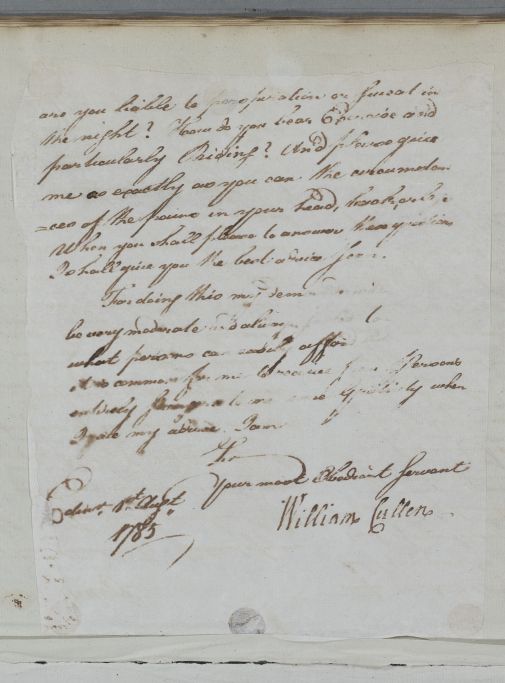 are you liable to perspiration or sweat in
the night? How do you bear Exercise and
particularly Riding? And please give
me as exactly as you can the circumstan
=ces of the pains in your head, back, &c.
When you shall please to answer these questions
I shall give you the best advice I can.
For doing this my demand will
be very moderate
what persons can easily afford
it is common for me to receive from Persons
entirely strangers to me one when
I give my advice. I am
Sir
Your most Obedient Servant
William Cullen
Edinr. 1st. Augt.
1785